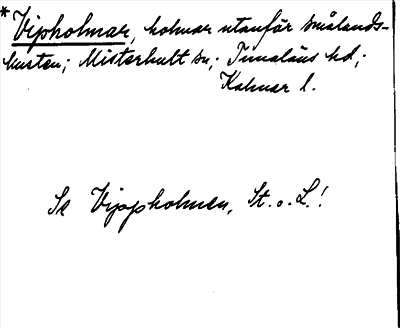 * Vipholmar, holmar utanför smålands-
kusten; Misterhult sn; Tunaläns hd;
Kalmar l.
Se Vippholmen, St. o. L.!